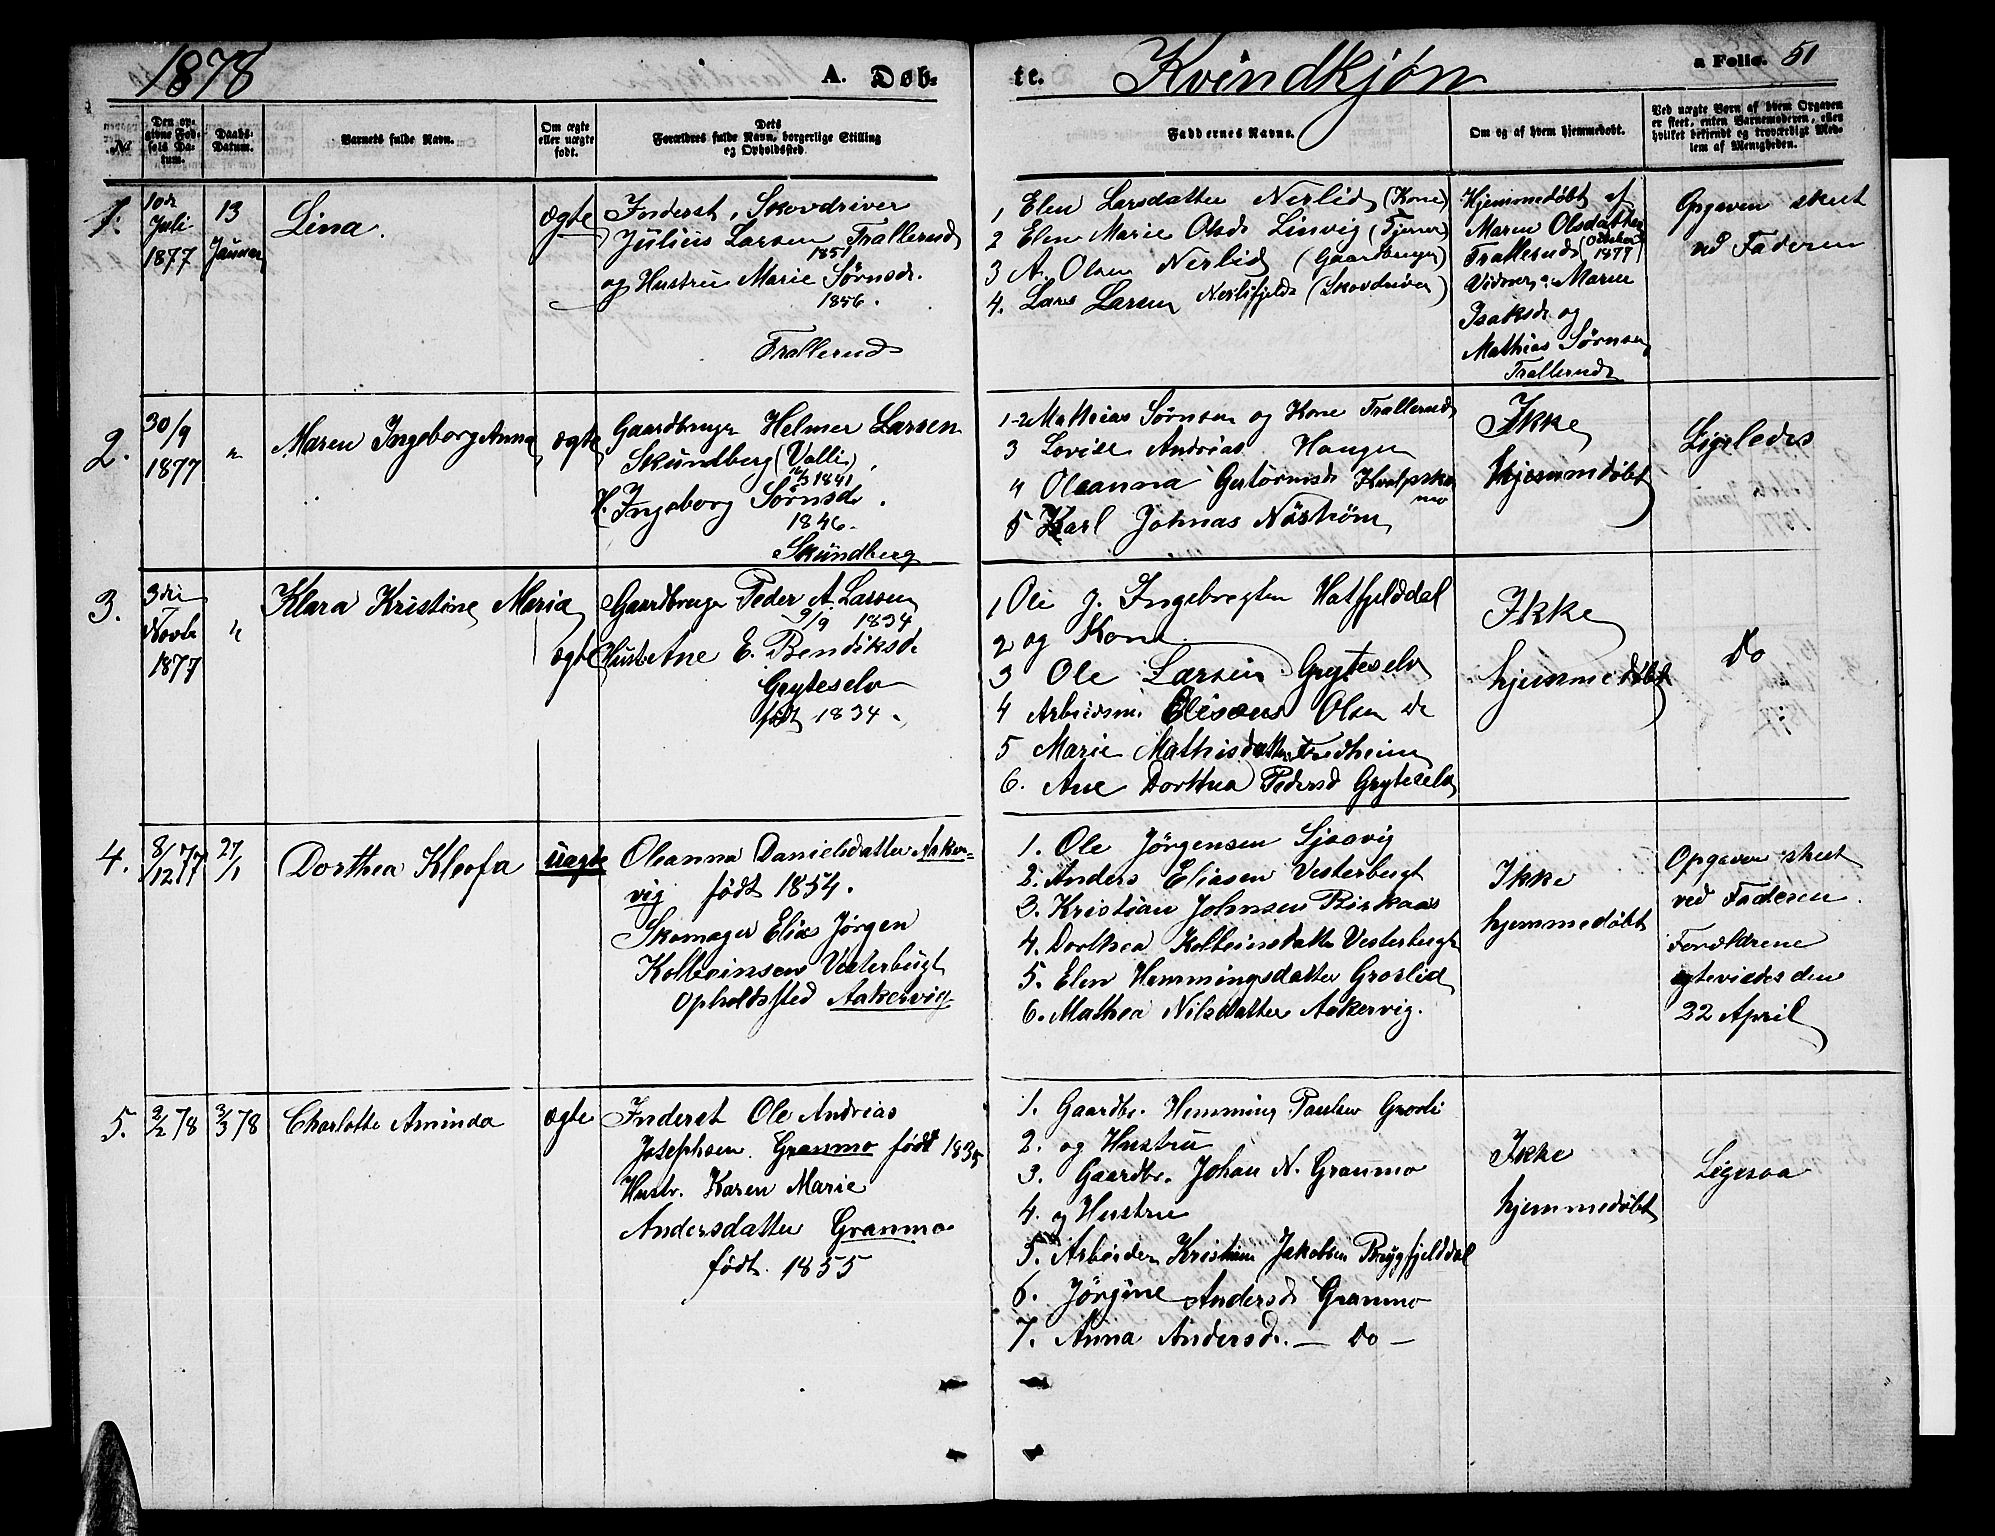 1878
A. Døb-
te.
Kvindkjøn
a Folio. 51
No
Den op-
givne Fød-
sels Da-
tum.
Daabs-
Datum.
Barnets fulde Navn.
Om ægte
eller uægte
født.
Dets
Forældres fulde Navn, borgerlige Stilling
og Opholdssted.
Faddernes Navne.
Om og af hvem hjemmedøbt.
Ved uægte Børn af hvem Opgaven
er skeet, enten Barnemoderen, eller
hvilket bekjendt og troværdigt Med-
lem af Menigheden.
1.
10de
Juli
1877
13
Januar
Lina.
ægte
Inderst, Skovdriver
Julius Larsen Trallerud
1851
og Hustru Marie Sørnsd.
1856.
Trallerud
1 Elen Larsdatter Nerlid (Kone)
2 Elen Marie Olsd. Linvig (Tjener)
3 A. Olsen Nerlid (Gaardbruger)
4. Lars Larsen Nerlifjeld (Skovdriver)
Hjemmedøbt af
Maren Olsdatter
Trallerud (October
1877
Vidner: Maren
Isaksd. og
Mathias Sørnsen
Trallerud
Opgaven skeet
ved Faderen
2.
30/9
1877
"
Maren Ingeborg Anna
ægte
Gaardbruger Helmer Larsen
Skundberg (Valli)
1841
H. Ingeborg Sørnsd.
1846.
Skundberg
1-2 Mathias Sørnsen og Kone Trallerud
3 Lovise Andreas. Haugen
4 Oleanna
mo
5 Karl Johnas Nøstrøm
Ikke
hjemmedøbt
Ligeledes
3.
3die
Novb.
1877
"
Klara Kristine Maria
ægte
Gaardbruger Peder A. Larsen
9/9 1834
Hust. Ane E. Bendiksd.
Gryteselv
født 1834.
1 Ole J. Ingebregtsen Hatfjelddal
2 og Kone
3 Ole Larsen Gryteselv
4 Arbeidsm. Elisæus Olsen do
5 Marie Mathisdatter Fredheim
6. Ane Dorthea Pedersd Gryteselv
Ikke
hjemmedøbt
Do
4.
8/12 77
27/1
Dorthea Kleofa
uægte
Oleanna Danielsdatter Aaker-
vig født 1854.
Skomager Elias Jørgen
Kolbeinsen Vesterbugt
Opholdssted Aakervig
1. Ole Jørgensen Sjaavig
2. Anders Eliasen Vesterbugt
3. Kristian Johnsen Birkaas
4. Dorthea Kolbeinsdatter Vesterbugt
5. Elen Hemmingsdatter Groslid
6. Mathea Nilsdatter Aakervig.
Ikke
hjemmedøbt
Opgaven skeet
ved Faderen.
Forældrene
egteviedes den
22 April
5.
2/2 78
3/3 78
Charlotte Aminda
ægte
Inderst Ole Andreas
Josephsen. Granmo født 1835
Hustr. Karen Marie
Andersdatter Granmo
født. 1855
1. Gaardbr. Hemming Paulsen Grovli
2. og Hustru
3. Gaardbr. Johan N. Granmo
4. og Hustru
5. Arbeider Kristian Jakobsen Brygfjelddal
6. Jørgine Andersd. Granmo
7. Anna Andersd. — Do —
Ikke
hjemmedøbt
Ligesaa